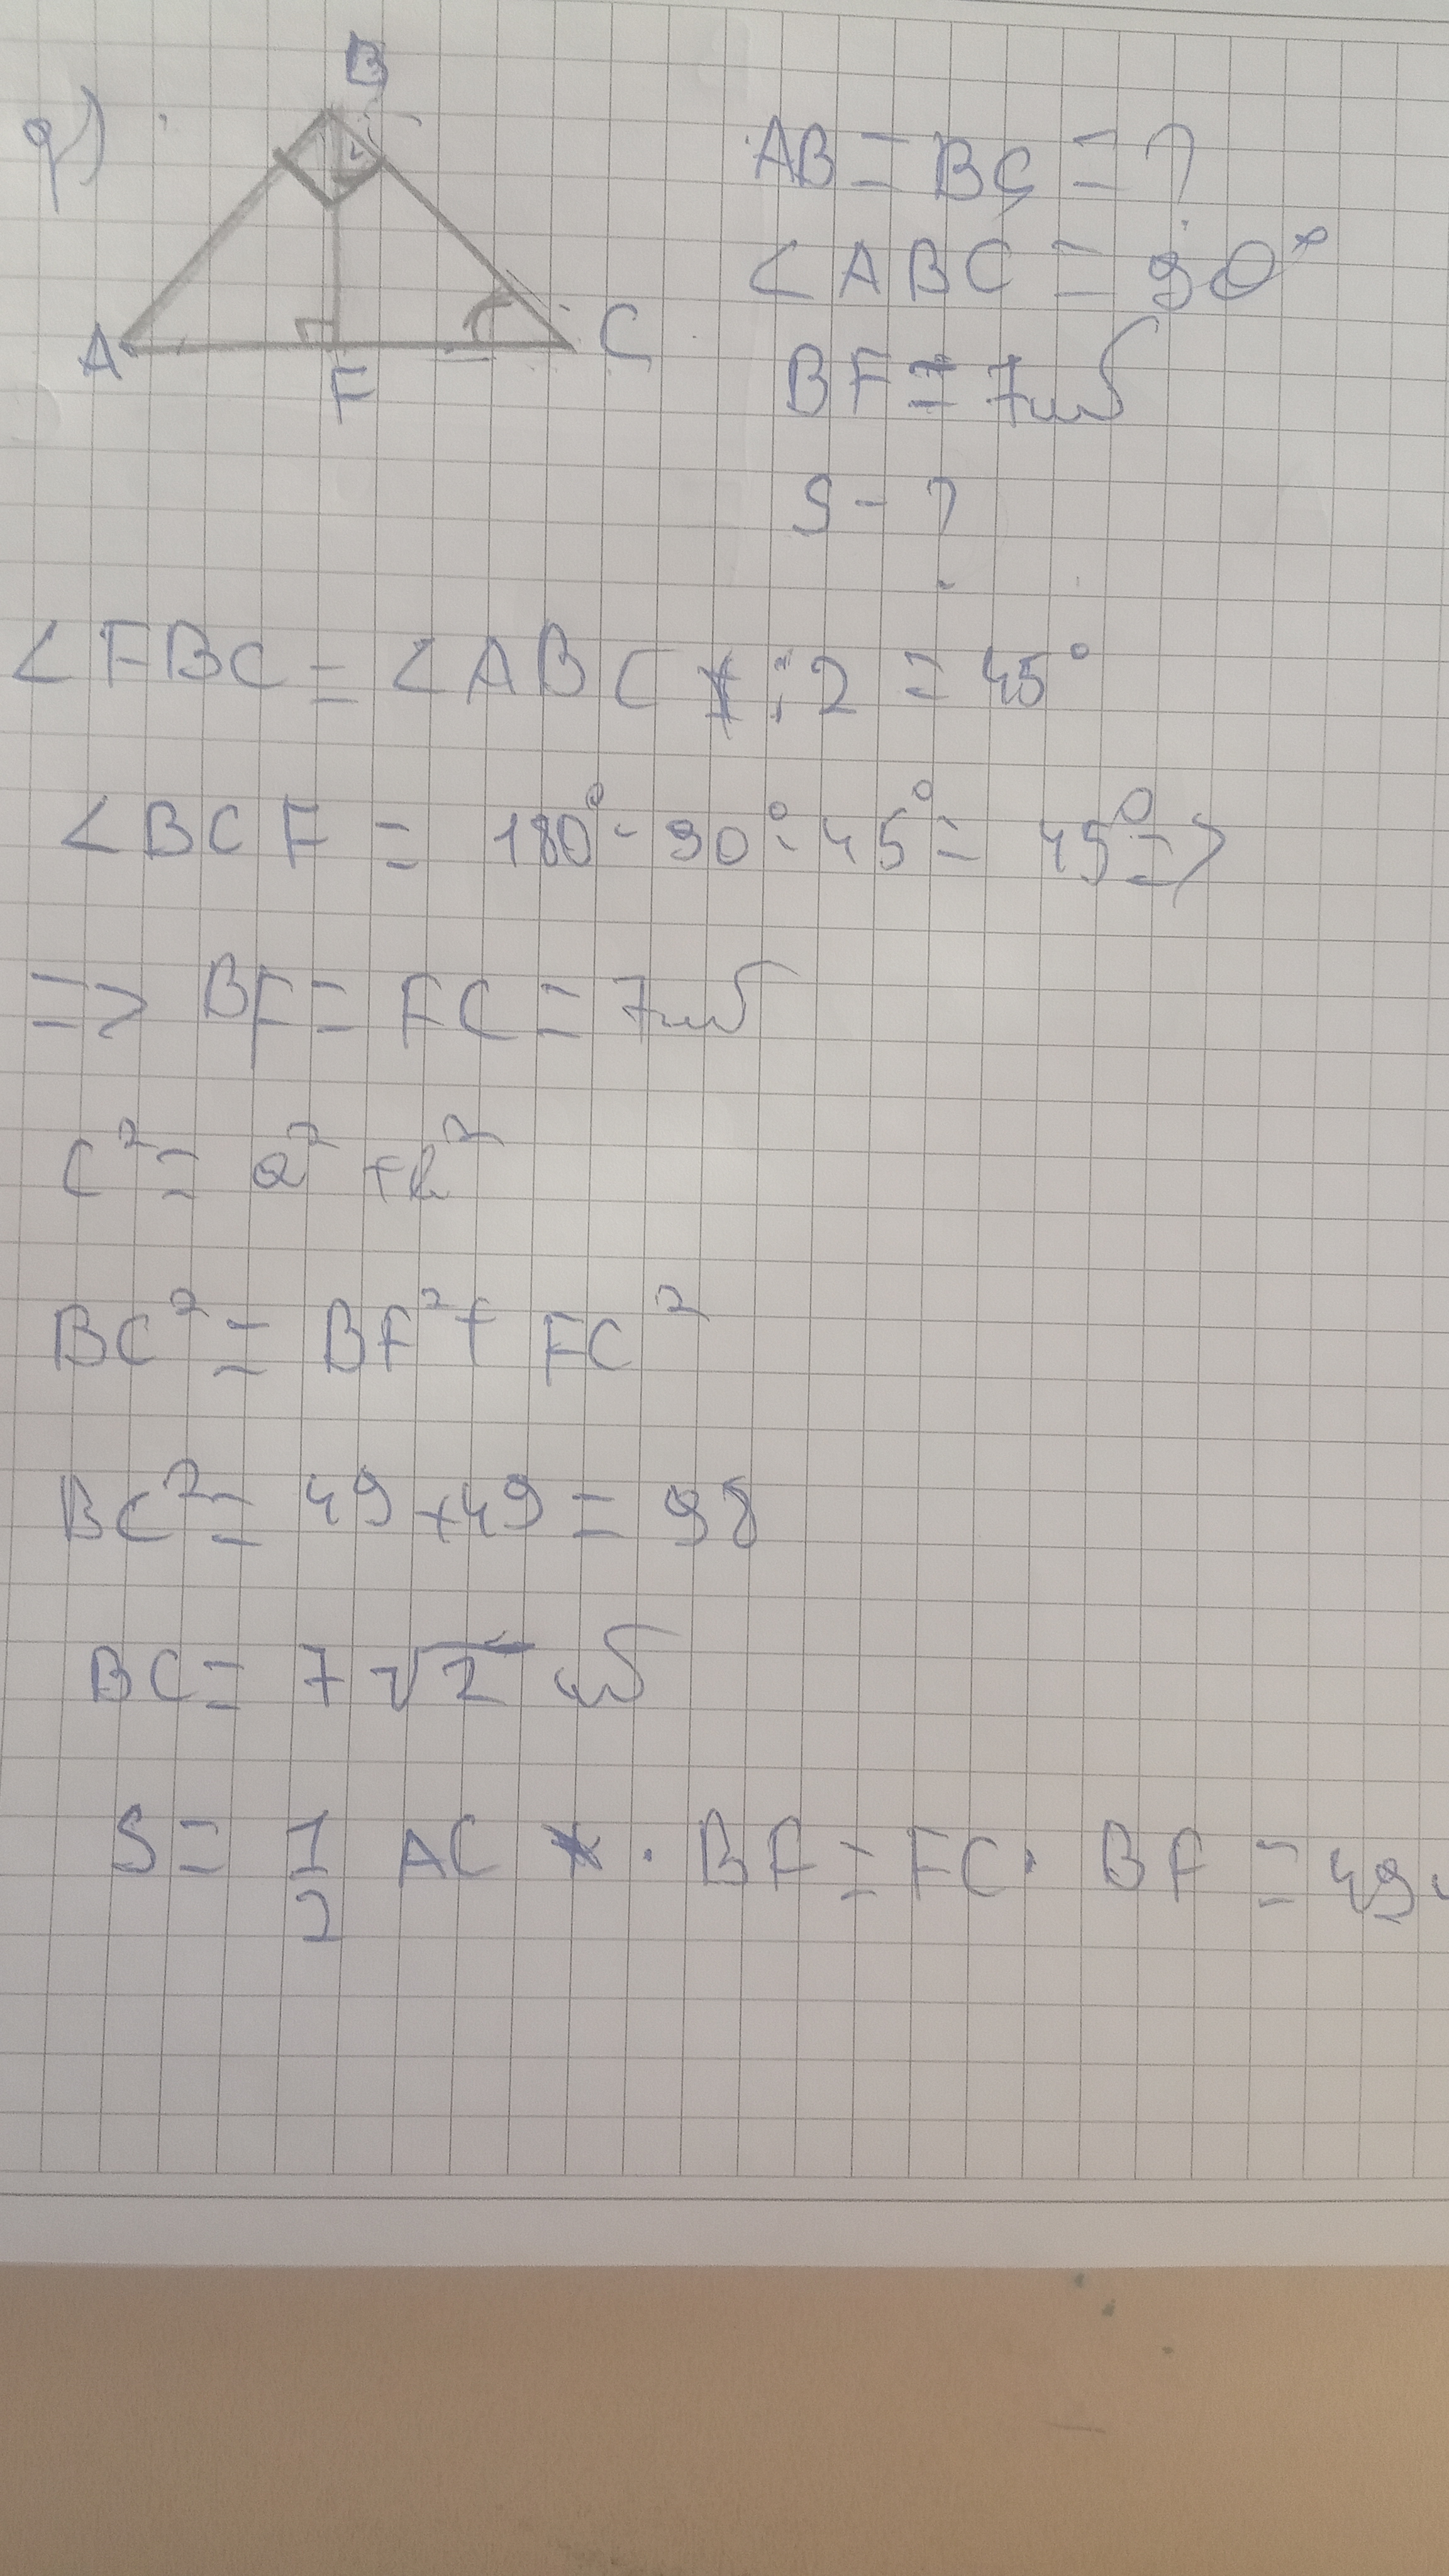 գ)
B
A
F
C
AB = BC = ?
∠ABC = 90°
BF = 7սմ
S - ?
∠FBC = ∠ABC : 2 = 45°
∠BCF = 180° - 90° - 45° = 45° =>
=> BF = FC = 7սմ
c² = a² + b²
BC² = BF² + FC²
BC² = 49 + 49 = 98
BC = 7√2 սմ
S = 1/2 AC · BF = FC · BF = 49